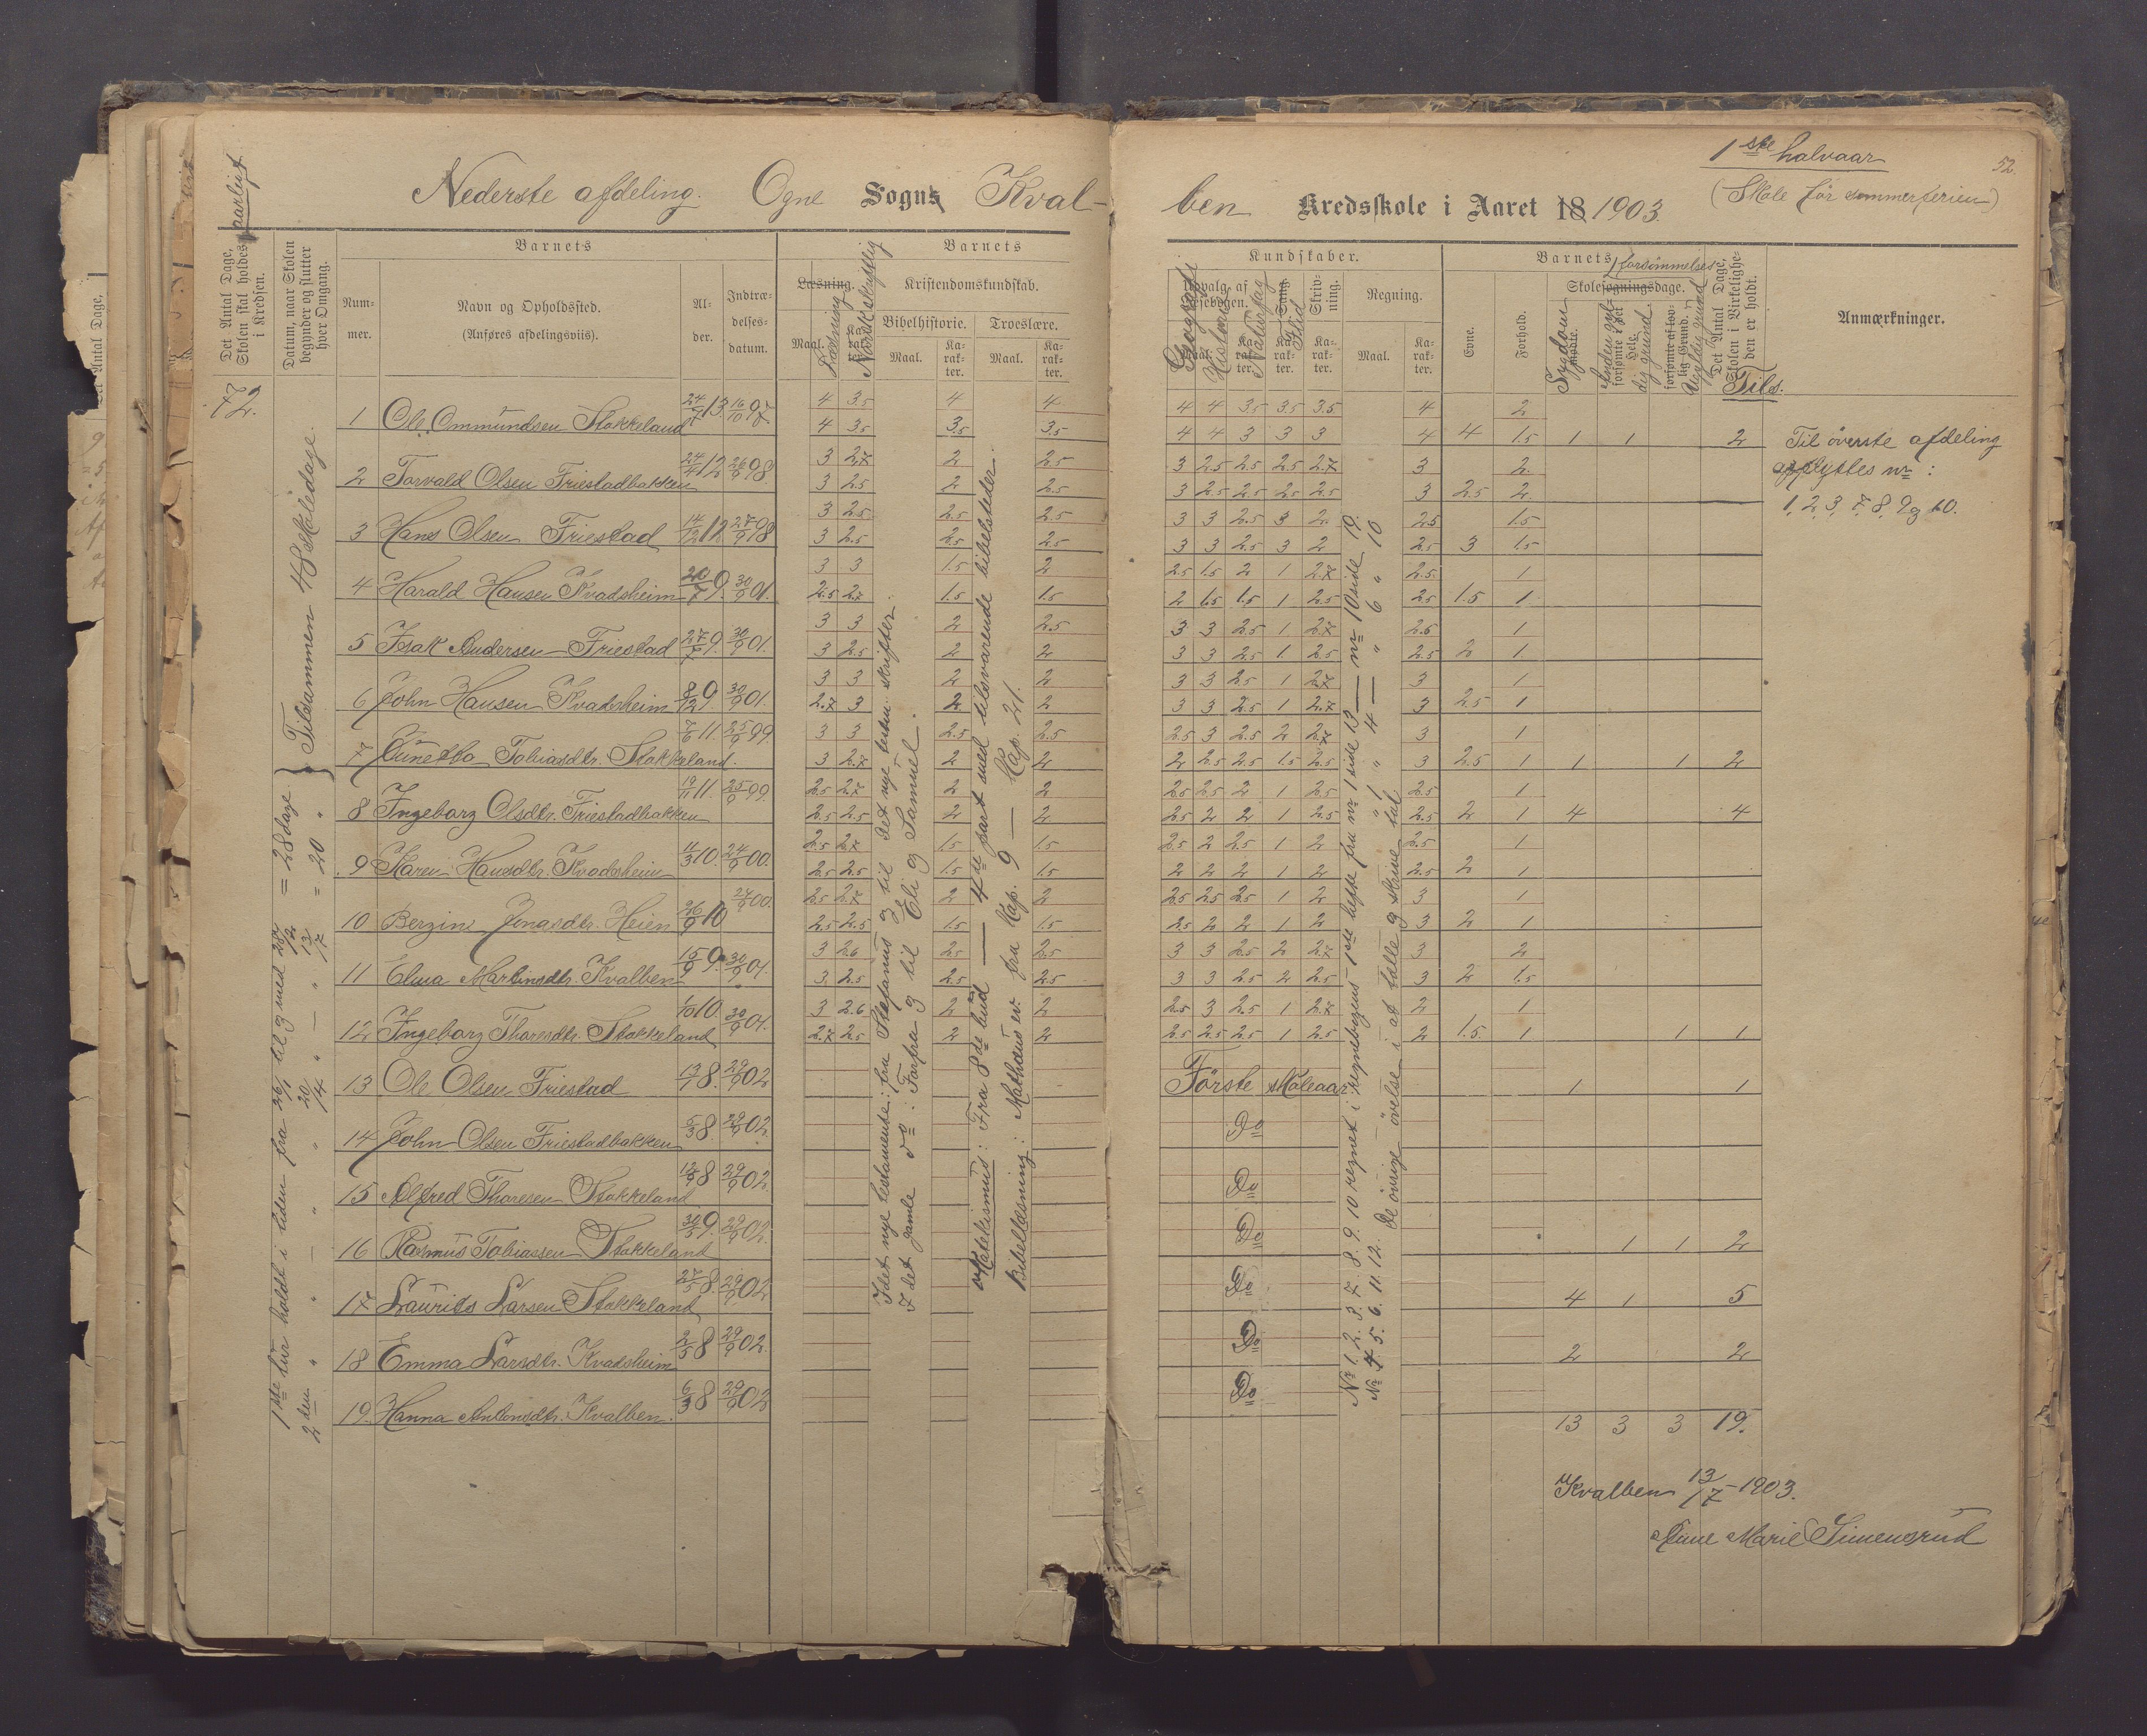 1ste halvaar
52.
(Skole før sommerferien)
Nederste afdeling. Ogne Sogns Kval-
ben Kredsskole i Aaret 18 1903.
aarligt
Det Antal Dage, Skolen skal holdes i Kredsen.
Datum, naar Skolen begynder og slutter hver Omgang.
Barnets
Num-mer.
Navn og Opholdssted.
(Anføres afdelingsviis).
Al-der.
Indtræ-delses-datum.
Barnets
Læsning.
Maal.
Læsning
Norsk skriftlig
Kristendomskundskab.
Bibelhistorie.
Troeslære.
Maal. Ka-rak-ter. Maal. Ka-rak-ter.
Kundskaber.
Geografi
Historie
Naturfag
Sang.
Flid
Skriv-ning.
Regning.
Ka-rak-ter. Ka-rak-ter. Maal. Ka-rak-ter.
Barnets
Evne. Forhold.
forsømmelser
Skolesøgningsdage.
Sygdom
mødte.
forsømte i det Hele.
forsømte af lov-lig Grund.
Ugyldig grund
Det Antal Dage, Skolen i Virkelighe-den er holdt.
Tils.
Anmærkninger.
72.
1 Ole Ommundsen Stokkeland 24/9 13 16/10 97.
4 3.5 4 4 4 4 3.5 3.5 3.5 4 2
4 3.5 3.5 3.5 4 4 3 3 3 4 4 1.5 1 1 2
2 Torvald Olsen Friestadbakken 24/4 12 26/9 98.
3 2.7 2 2.5 3 2.5 2.5 2.5 2.7 3 2.
3 2.5 2 2.5 3 2.5 2.5 2.5 2.5 3 2.5 2.
3 Hans Olsen Friestad 14/12 12 27/9 98
3 2.5 2.5 2.5 3 3 2.5 3 2. 2.5 1.5
3 2.5 2.5 2.5 3 3 2.5 3 2 2.5 3 1.5
4 Harald Hansen Kvadsheim 9. 30/9 01.
3 3 1.5 2 2.5 1.5 2 1 2.7 2.5. 1
2.5 2.7 1.5 1.5 2 1.5 1.5 1 2.5 2.5 1.5 1
5 Isak Andersen Friestad 9. 30/9 01.
3 3 2 2.5 3 3 2.5 1 2.7 2.5 1
3 2.5 2 2 3 3 2.5 1. 2.5 2.5 2 1.
6 John Hansen Kvadsheim 8/12 9 30/9 01.
3 3 2 2 3 3 2.5 1 2.7 3 1
2.7 3 2 2 3 3 2.5 1 2.7 3 2.5 1
7 Gunetta Tobiasdtr. Stokkeland. 7/6 11. 25/9 99.
3 3 2.5 2.5 2.5 3 2.5 2 2.7 3 1
3 2.7 2 2 2 2.5 2.5 1.5 2.5 3 2.5 1 1 1 2
8 Ingeborg Olsdtr. Friestadbakken 19/11 11. 25/9 99.
2.5 2.7 2 2 2.5 2.5 2 1 2.5 2.5 1
2.5 2.5 2 2 2.5 2 2 1 2.5 2.5 2 1 4 4
9 Karen Hansdtr. Kvadsheim 11/3 10. 24/9 00.
2.5 2.7 1.5 1.5 2.5 2 2.5 1 2 2.5 1
2.5 2.5 1.5 1.5 2 2 2 1 2 2.5 2 1
10 Bergine Jonasdtr. Heien 26/9 10 24/9 00.
2.5 2.7 2 2 2.5 2.5 2.5 1 2 3 1
2.5 2.5 1.5 1.5 2.5 2 2 1 2 3 2 1
11 Elma Martinsdtr. Kvalben 15/9 9. 30/9 01.
3 2.6 2.5 2.5 3 3 2.5 2 2.7 3 2
3. 2.5 2.5 2.5 3 3 2.5 2 2.5 3 2 1.5
12 Ingeborg Thoresdtr. Stokkeland 1/10 10. 30/9 01.
3 2.6 2 2 2.5 3 2.5 1 2.7 2 1
2.7 2.5 2 2 2.5 2.5 2.5 1 2.5 2 1.5. 1 1 1
13 Ole Olsen Friestad 13/7 8. 29/9 02 Første skoleaar 1 1
14 John Olsen Friestadbakken 5/3 8. 29/9 02. Do
15 Alfred Thoresen Stokkeland 8 29/9 02. Do
16 Rasmus Tobiassen Stokkeland 9. 29/9 02. Do 1 1 2
17 Laurits Larsen Stokkeland 27/5 8. 29/9 02 Do 4 1 5
18 Emma Larsdtr. Kvadsheim 2/5 8 29/9 02. Do 2 2
19. Hanna Antonsdtr. Kvalben. 6/3 8 29/9 02 Do
13 3 3 19.
1ste tur holdt i tiden fra 26/1 til og med 28/2 = 28 dage.
2den " — " — " 20/4 " — " 13/7 = 20 "
Tilsammen 48 skoledage.
I det nye testamente: fra Stefanus og til Det nye testm. skrifter.
I det gamle do: Forfra og til Eli og Samuel.
Katekismus: Fra 8de bud — 4de part med tilsvarende bibelsteder.
Bibellæsning: Mathæus ev. fra Kap. 9 — Kap. 21.
No 1. 2. 3. 7. 8. 9. 10 regnet i regnebogens 1ste hefte fra nr 1 side 13 — nr 10 side 19.
No 4. 5. 6. 11. 12. " 1 " 4 — " 6 " 10
De øvrige øvelse i at tælle og skrive tal
Til øverste afdeling
opflyttes nr:
1, 2, 3, 7, 8, 9 og 10.
Kvalben 13/7 1903.
Anne Marie Simensrud